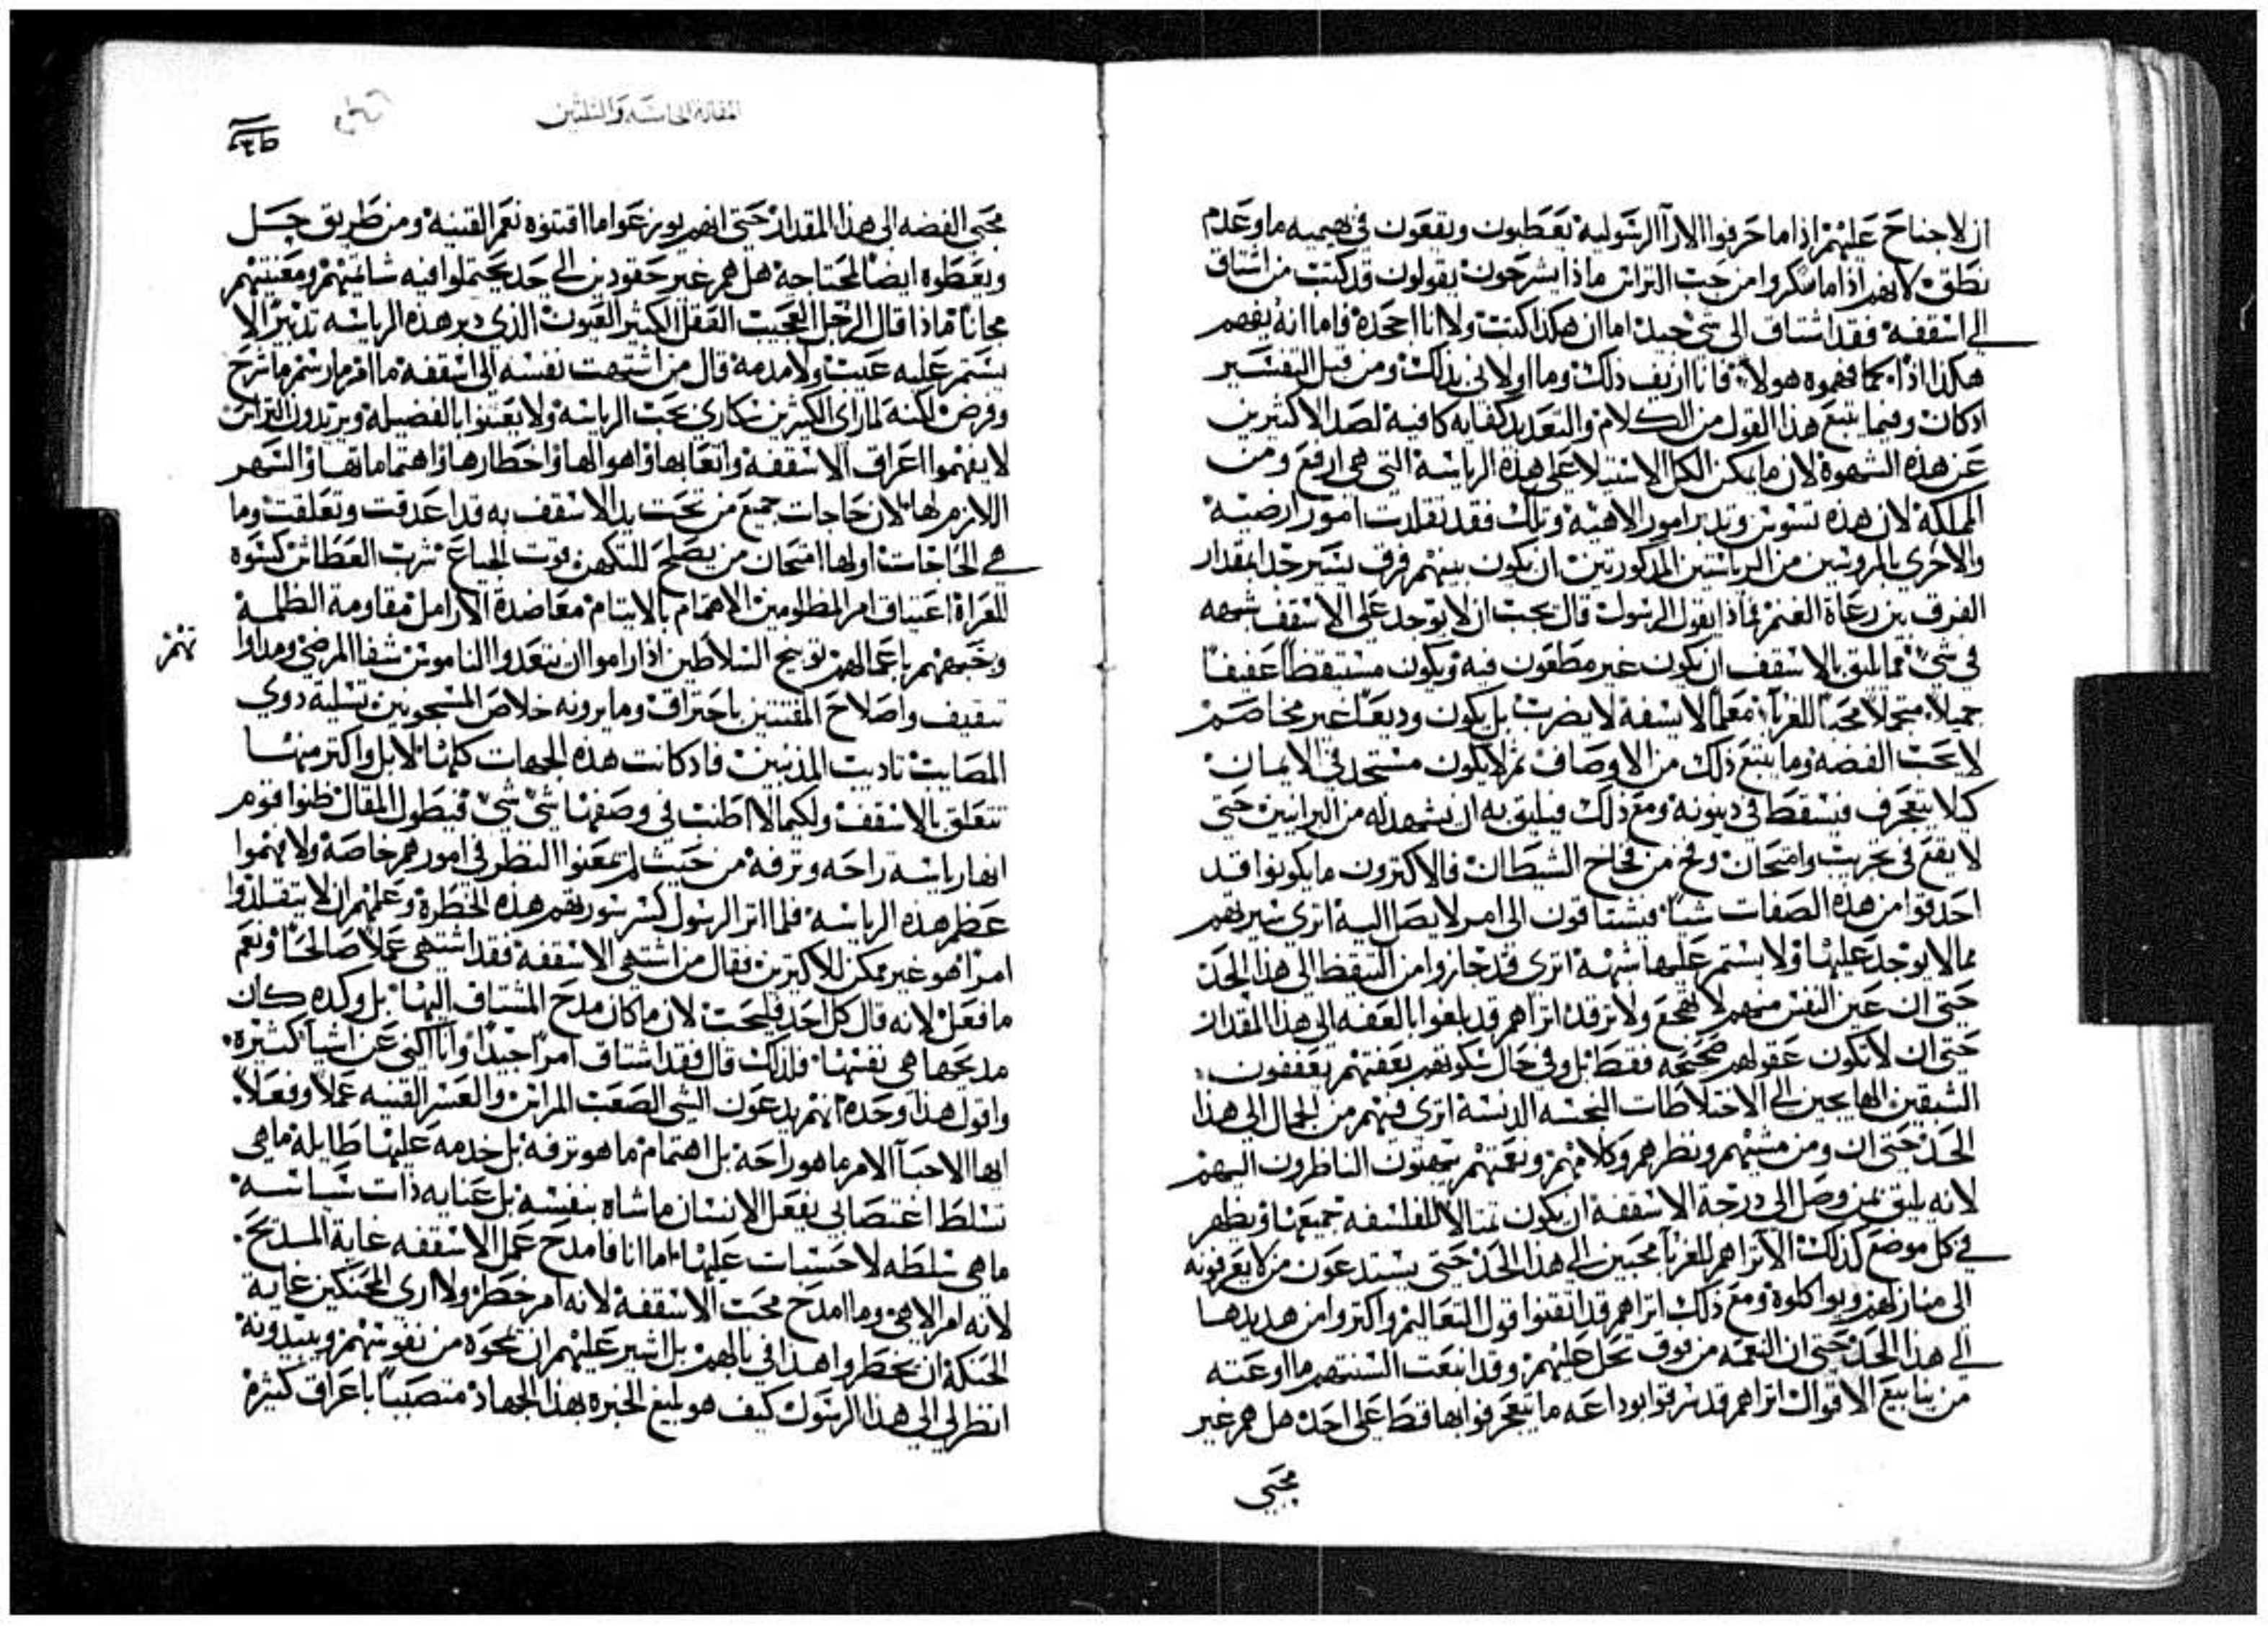 ان لا جناح عليهم اذا ما حرفوا الارآ الرسوليه يغطبون ويقعون في بهيميه ما وعدم
نطق لانهم اذا ما سكروا من حب التراس ماذا يشرحون يقولون قد كتب من اشتاق
الي اسقفيه فقد اشتاق الى شي جيد اما ان هكذا كتب ولا انا اجحده فاما انه يفهم
هكذا اذا كما فهموه هولاء فانا ازيف ذلك وما اولاني بذلك ومن قبل التفسير
اذ كان وفيما يتبع هذا القول من الكلام والتعديد كفايه كافيه لصد الاكثرين
عن هذه الشهوة لان ما يمكن الكل الاستيلا على هذه الرياسة التي هي ارفع ومن
المملكة لان هذه تسوس وتدبر امور الاهية وتلك فقد تقلدت امور ارضية
والاحرى بالمروسين من الرياستين المذكورتين ان يكون بينهم فرق يسير جدا بمقدار
الفرق بين رعاة الغنم فماذا يقول الرسول قال يجب ان لا يوجد على الاسقف شبهه
في شي مما يليق بالاسقف ان يكون غير مطعون فيه ويكون مستيقظا عفيفا
جميلا متجملا محبا للغربآ معلما لا يسفه لا يضرب بل يكون وديعا غير مخاصم
لا يحب الفضه وما يتبع ذلك من الاوصاف ثم لا يكون مستجد في الايمان
كيلا يتعجرف فيسقط في دينونة ومع ذلك فيليق به ان يشهد له من البرانيين حتى
لا يقع في تجريب وامتحان وفخ من فخاخ الشيطان فالاكثرون ما يكونوا قد
احد قوا من هذه الصفات شيا فيشتاقون الى امر لا يصل اليه اترى سيرتهم
مما لا يوجد عليها ولا يستمر عليها شبهة اترى قد حازوا من التيقظ الى هذا الحد
حتى ان عين النفس منهم لا تهجع ولا ترقد اتراهم قد بلغوا بالعفه الى هذا المقدار
حتى ان لا تكون عقولهم صحيحه فقط بل وفي حال سكوتهم بعفتهم يعففون
الشبقين الهايجين الى الاختلاطات النجسه الدنسة اترى فيهم من الجمال الى هذا
الحد حتى ان ومن مشيهم ونظرهم وكلامهم ونغمتهم يبهتون الناظرون اليهم
لانه يليق بمن وصل الى درجة الاسقفه ان يكون تمثالا للفلسفه جميعها ويظهر
في كل موضع كذلك الا تراهم للغربآ محبين الى هذا الحد حتى يستدعون من لا يعرفونه
الى منازلهم ويواكلوه ومع ذلك اتراهم قد اتقنوا قول التعاليم واكثروا من هديدها
الى هذا الحد حتى ان النعمه من فوق تحل عليهم وقد انبعت السنتهم ما اوعته
من ينابيع الاقوال اتراهم قد شرفوا بوداعه ما يتعجرفوا بها قط على احد هل هم غير
محبي
المقالة الخامسة والثلثين
محبي الفضه الى هذا المقدار حتى انهم يوزعوا ما اقتنوه نعم القنيه ومن طريق حل
ويعطوه ايضا لمحتاجة هل هم غير حقودين الى حد يحتملوا فيه شاتميهم ومعنتيهم
مجانا فماذا قال الرجل العجيب العقل الكثير العيون الذي دبر هذه الرياسه تدبيرا لا
يستمر عليه عيب ولا مذمه قال من اشتهت نفسه الى اسقفيه ما امر ما رسم ما شرح
وفرض لكنه لما راى الكثيرين سكارى بحب الرياسه ولا يعتنوا بالفضيلة ويريدون التراس
لا يفهموا اعراق الاسقفية واتعابها واهوالها واخطارها واهتماماتها والسهر
اللازم لها لان حاجات جميع من تحت يد الاسقف به قد اعدقت وتعلقت وما
هي الحاجات اولها امتحان من يصلح للتكهن قوت الجياع شرب العطاش كسوة
للعراة اعتياق امر المظلومين الاهتمام بالايتام معاضدة الارامل مقاومة الظلمة
وخصهم باعمالهم توبيخ السلاطين اذا راموا ان يتعدوا الناموس شفا المرضى ومداوا
تهم
تثقيف واصلاح المفتنين باحتراق وما يرونه خلاص المسجونين تسلية ذوي
المصايب تاديب المذنبين فاذ كانت هذه الجهات كلها لا بل واكثر منها
تتعلق بالاسقف ولكيما لا اطنب في وصفها شي شي فيطول المقال ظنوا قوم
انها رياسة راحه وترفه من حيث لم يمعنوا النظر في امورهم خاصة ولا فهموا
عظم هذه الرياسة فلما اثر الرسول كسر سورتهم هذه الخطرة وعلمهم ان لا يتقلدوا
امرا هو غير ممكن للاكثرين فقال من اشتهى الاسقفه فقد اشتهى عملا صالحا ونعم
ما فعل لانه قال كل احد فليحب لان ما كان مدح المشتاق اليها بل وكده كان
مديحها هي نفسها فلذلك قال فقد اشتاق امرا جيدا وانا اكني عن اشيا كثيره
واقول هذا وحده انهم يدعون الشي الصعب المراس والعسر القنيه عملا وفعلا
ايها الاحبآ الامر ما هو راحة بل اهتمام ما هو ترفه بل خدمه عليها طايله ما هي
تسلط اغتصابي بفعل الانسان ما شاه بنفسه بل عنايه ذات سياسه
ما هي سلطه لا حسبات عليها اما انا فامدح عمل الاسقفه غاية المديح
لانه امر الاهي وما امدح محب الاسقفة لانه امر خطر ولا ارى المحنكين غاية
الحنكة ان يخطروا هذا في بالهم بل اشير عليهم ان يمحوه من نفوسهم ويبيدونه
انظر لي الى هذا الرسول كيف هو بليغ الخبره بهذا الجهاد متصببا باعراق كثيرة